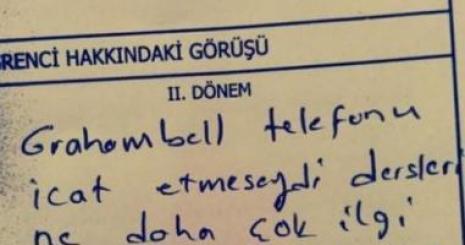 RENCİ HAKKINDAKİ GÖRÜŞÜ
II. DÖNEM
Grahambell telefonu
icat etmeseydi dersleri
ne daha çok ilgi